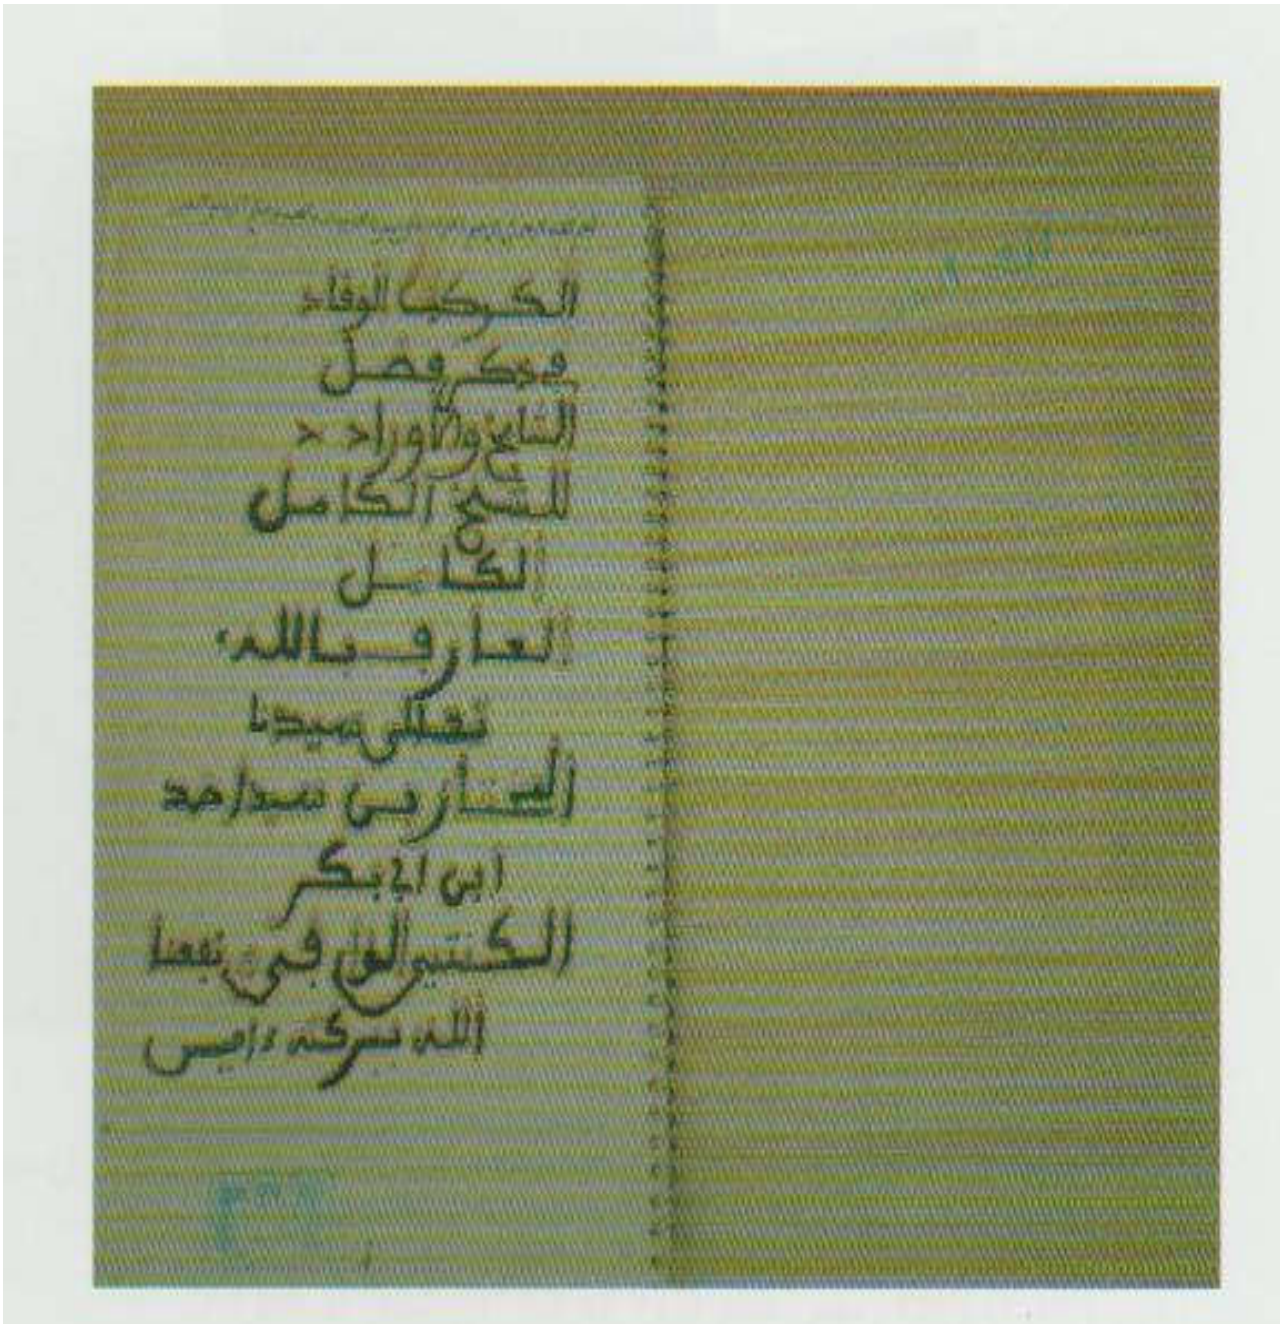 الكوكب الوقاد
في ذكر فضل
المشايخ والأوراد
للشيخ الكامل
الكامل
العارف بالله
تعالى سيدنا
المختار بن سيد احمد
ابن ابي بكر
الكنتي الوافي نفعنا
الله ببركته ءامين